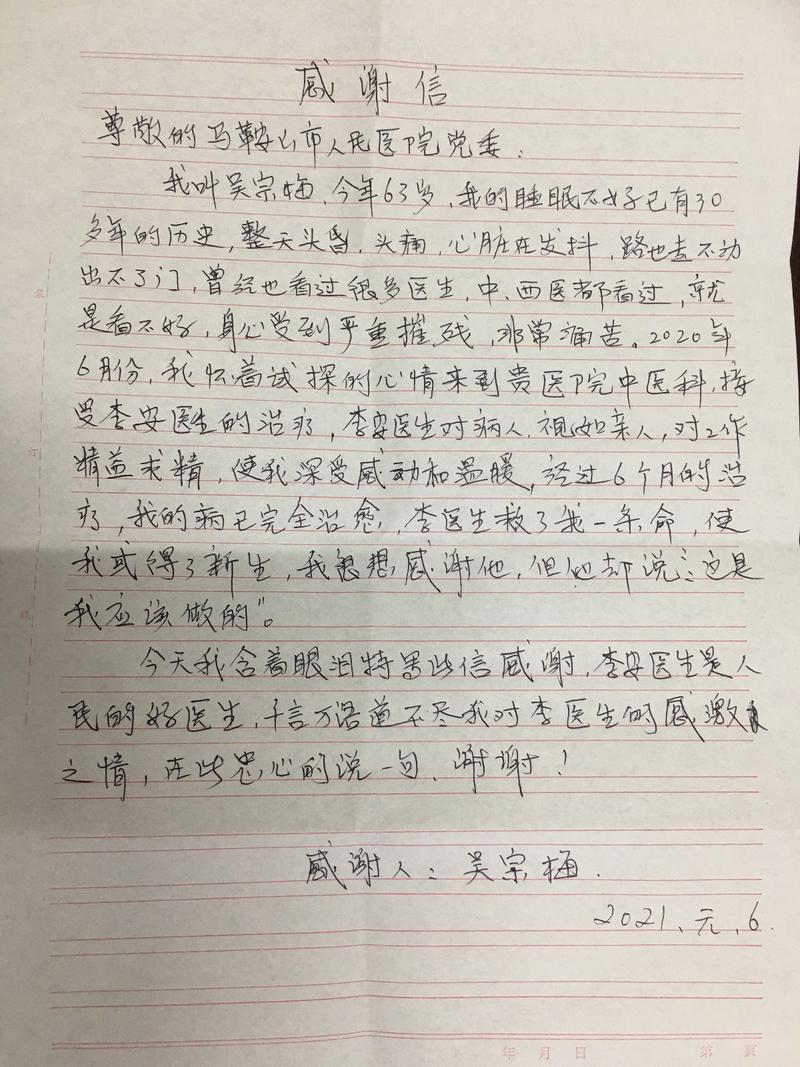 感谢信
尊敬的马鞍山市人民医院党委:
我叫吴宗梅、今年63岁,我的睡眠不好已有30
多年的历史,整天头昏,头痛,心脏在发抖,路也走不动
出不了门,曾经也看过很多医生,中、西医都看过,就
是看不好,身心受到严重摧残,非常痛苦。2020年
6月份,我怀着试探的心情来到贵医院中医科,接
受李安医生的治疗,李安医生对病人,视如亲人,对工作
精益求精,使我深受感动和温暖,经过6个月的治
疗,我的病已完全治愈,李医生救了我一条命,使
我或得了新生,我很想感谢他,但他却说:“这是
我应该做的”。
今天我含着眼泪特写此信感谢,李安医生是人
民的好医生,千言万语道不尽我对李医生的感激
之情,在此忠心的说一句、谢谢!
感谢人:吴宗梅.
2021、元、6.
装
订
线
年 月 日
第 页